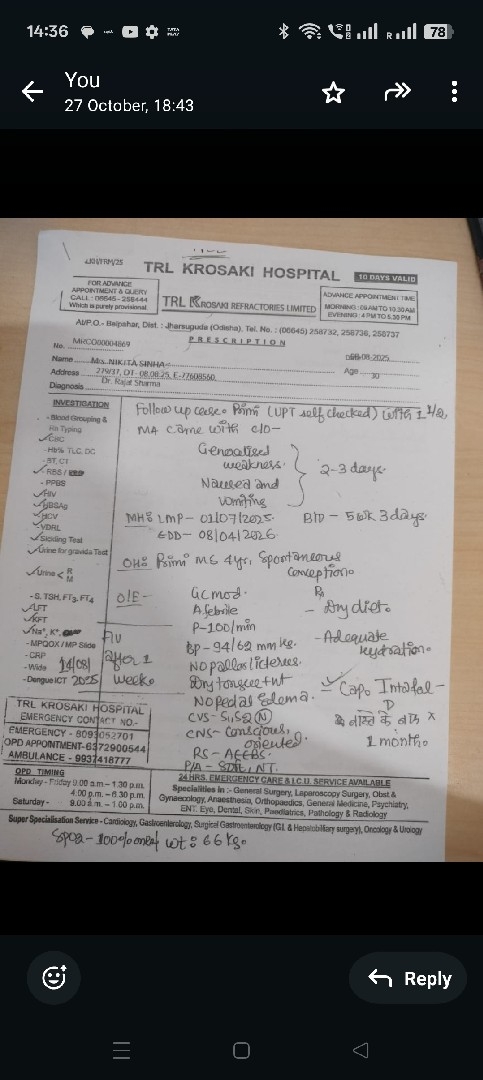 14:36
78
You
27 October, 18:43
JKH/FRM/25
TRL KROSAKI HOSPITAL
10 DAYS VALID
FOR ADVANCE
APPOINTMENT & QUERY
CALL : 06645-258444
Which is purely provisional
TRL KROSAKI REFRACTORIES LIMITED
ADVANCE APPOINTMENT TIME
MORNING : 09 AM TO 10.30 AM
EVENING : 4 PM TO 5.30 PM
At/P.O.- Belpahar, Dist. : Jharsuguda (Odisha), Tel. No. : (06645) 258732, 258738, 258737
PRESCRIPTION
No. MHCO00004869
08-08-2025
Name Mrs. NIKITA SINHA
Address 279/37, DT- 08.08.25, E-77608560,
Age 30
Dr. Rajat Sharma
Diagnosis
INVESTIGATION
- Blood Grouping &
Rh Typing
CBC
- Hb% TLC, DC
- BT, CT
- RBS /
- PPBS
HIV
HBSAg
HCV
VDRL
Sickling Test
Urine for gravida Test
Urine < R
M
- S. TSH, FT3, FT4
LFT
KFT
Na+, K+,
- MPQDX / MP Slide
- CRP
- Wide
- Dengue ICT
F/U
after 1
week
14/08/
2025
Follow up case Primi (UPT self checked) with 1 1/2
MA came with c/o-
Generalised
weakness.
Nausea and
vomiting
2-3 days.
MH: LMP - 01/07/2025. POG - 5wk 3days.
EDD - 08/04/2026
OH: Primi MS 4yr, Spontaneous
conception.
O/E -
GC mod.
Afebrile
P-100/min
BP - 94/62 mmHg.
No pallor/icterus.
Dry tongue +nt
No Pedal Edema.
CVS - S1S2 (N)
CNS - Conscious,
oriented.
RS - AEEBS.
P/A - Soft, NT.
Rx
- Dry diet.
- Adequate
hydration.
- Cap. Intafal-
D
नाश्ते के बाद x
1 month.
TRL KROSAKI HOSPITAL
EMERGENCY CONTACT NO.-
EMERGENCY - 8093052701
OPD APPOINTMENT-6372900544
AMBULANCE - 9937418777
OPD TIMING
Monday - Friday 9.00 a.m - 1.30 p.m.
4.00 p.m. - 6.30 p.m.
Saturday - 9.00 a.m. - 1.00 p.m.
24 HRS. EMERGENCY CARE & I.C.U. SERVICE AVAILABLE
Specialities in :- General Surgery, Laparoscopy Surgery, Obst &
Gynaecology, Anaesthesia, Orthopaedics, General Medicine, Psychiatry,
ENT, Eye, Dental, Skin, Paediatrics, Pathology & Radiology
Super Specialisation Service - Cardiology, Gastroenterology, Surgical Gastroenterology (G.I. & Hepatobiliary surgery), Oncology & Urology
SpO2 - 100% on RA wt: 66 kg.
Reply